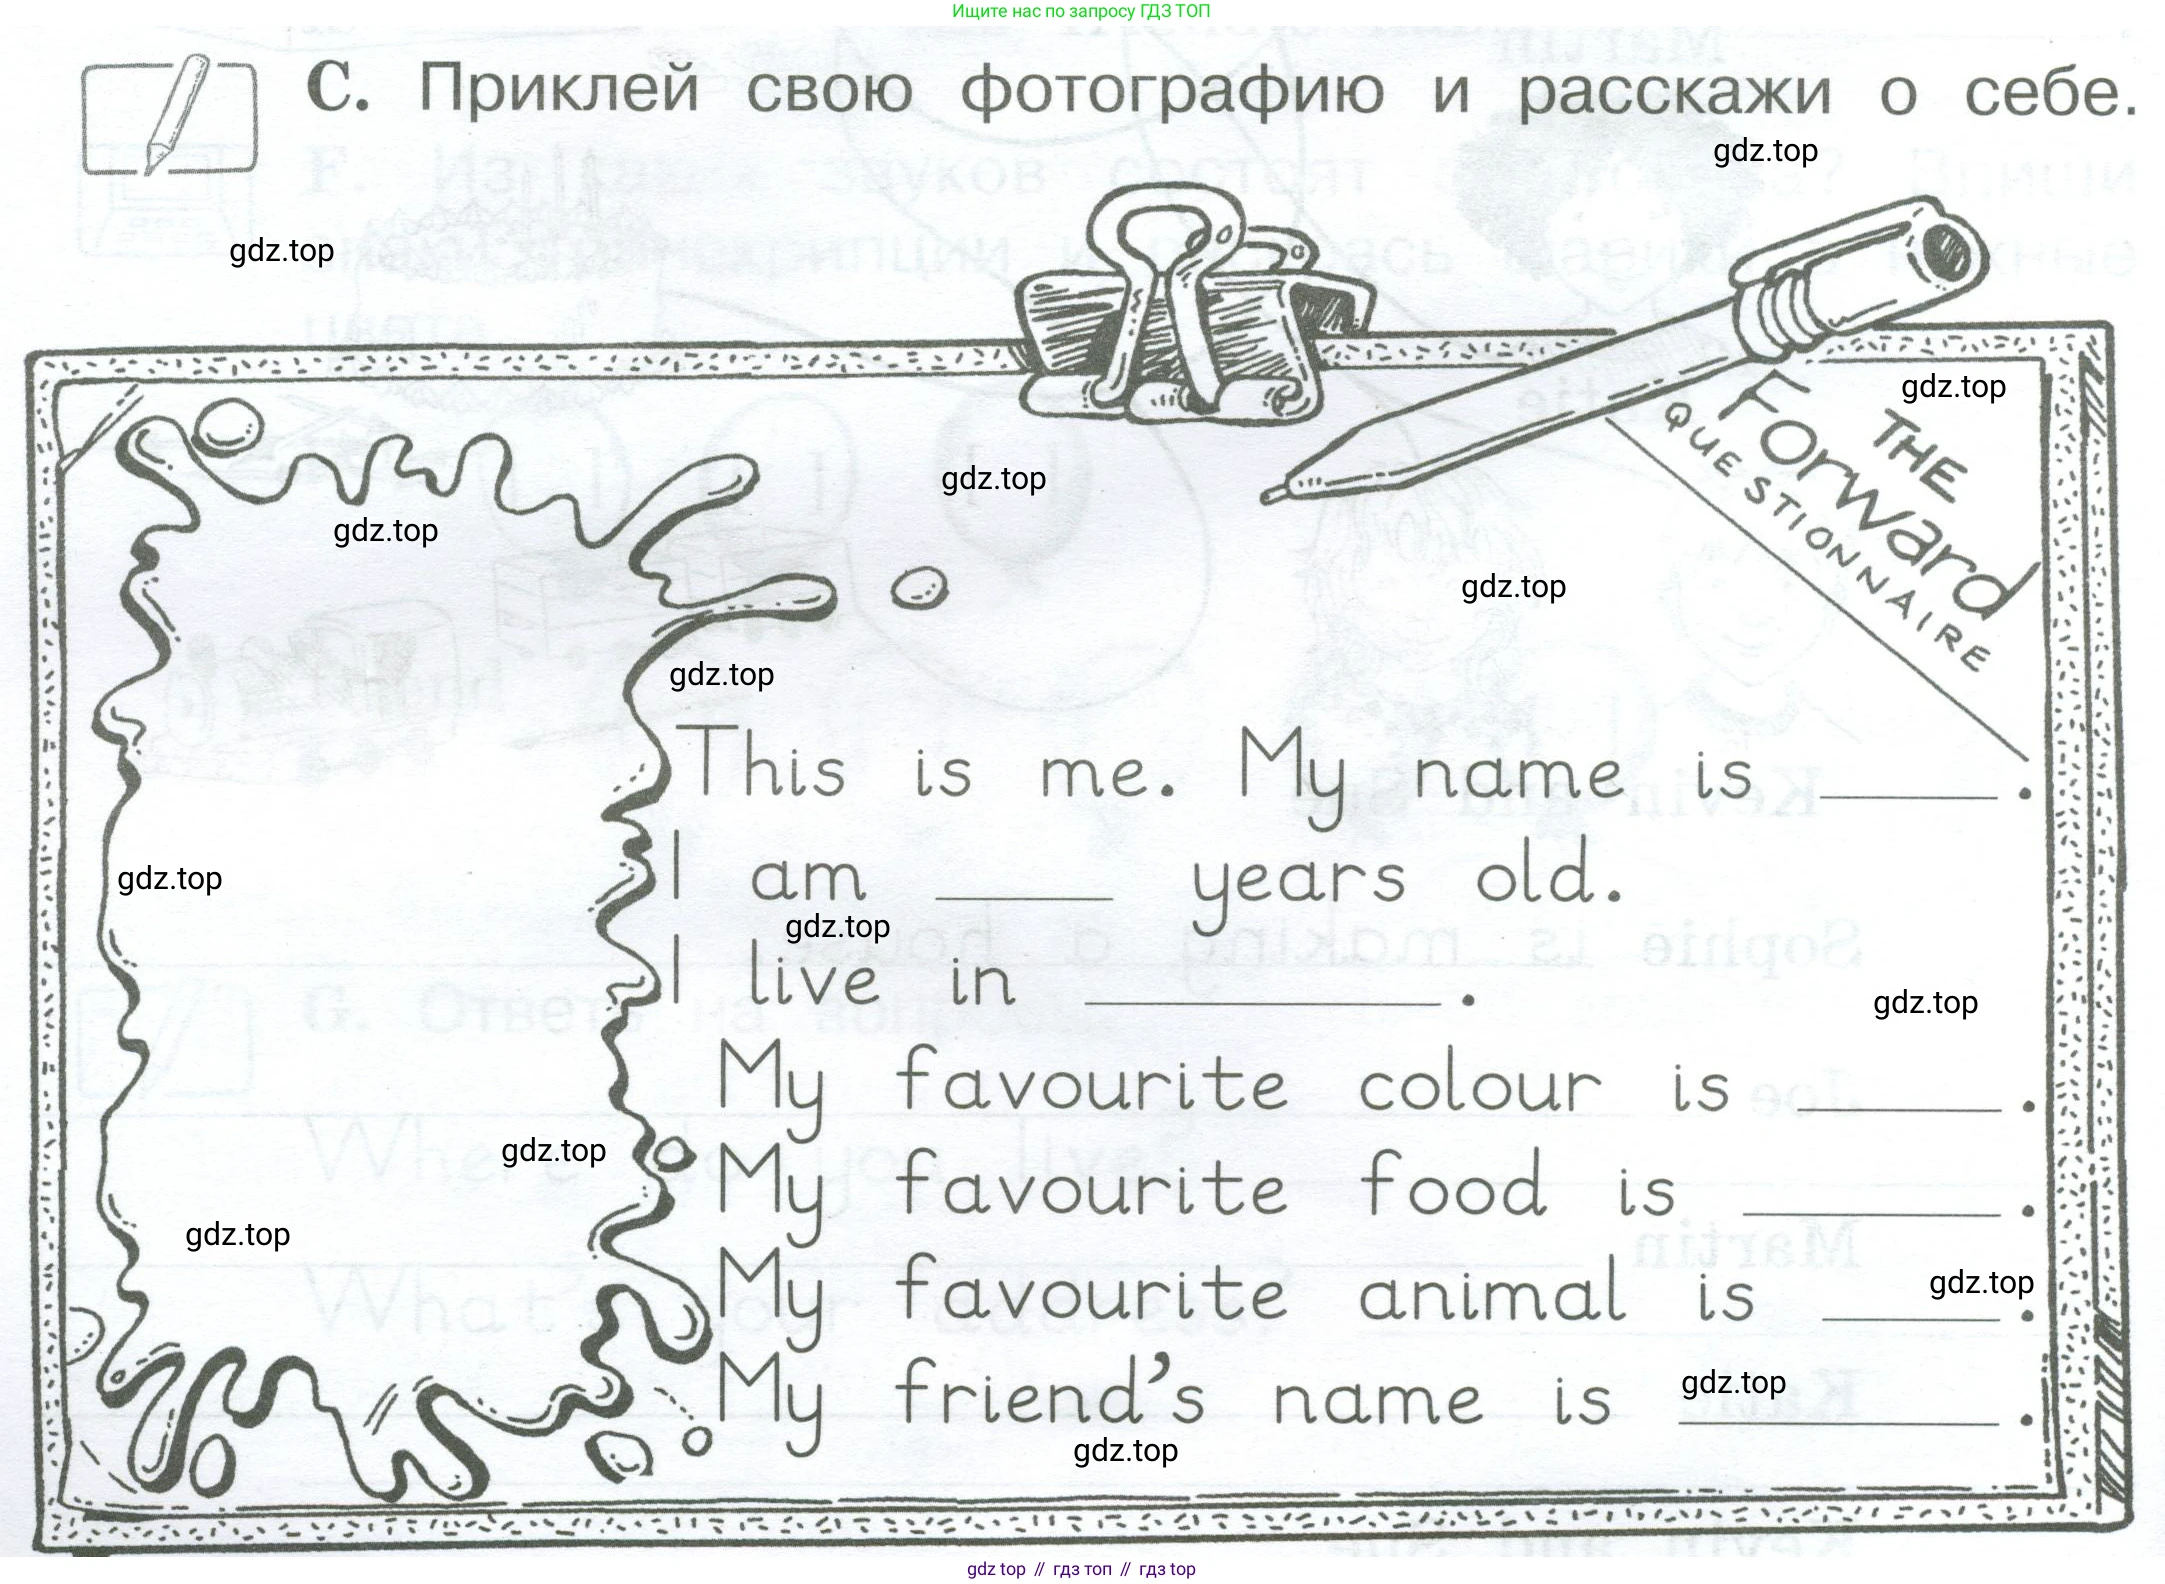 Ищите нас по запросу ГДЗ ТОП
C. Приклей свою фотографию и расскажи о себе.
gdz.top
gdz.top
gdz.top
THE
Forward
QUESTIONNAIRE
gdz.top
gdz.top
gdz.top
gdz.top
This is me. My name is ______.
I am ______ years old.
gdz.top
gdz.top
I live in ____________.
gdz.top
My favourite colour is ______.
gdz.top
My favourite food is ________.
gdz.top
My favourite animal is ______.
gdz.top
My friend's name is __________.
gdz.top
gdz.top
gdz top // гдз топ // гдз top